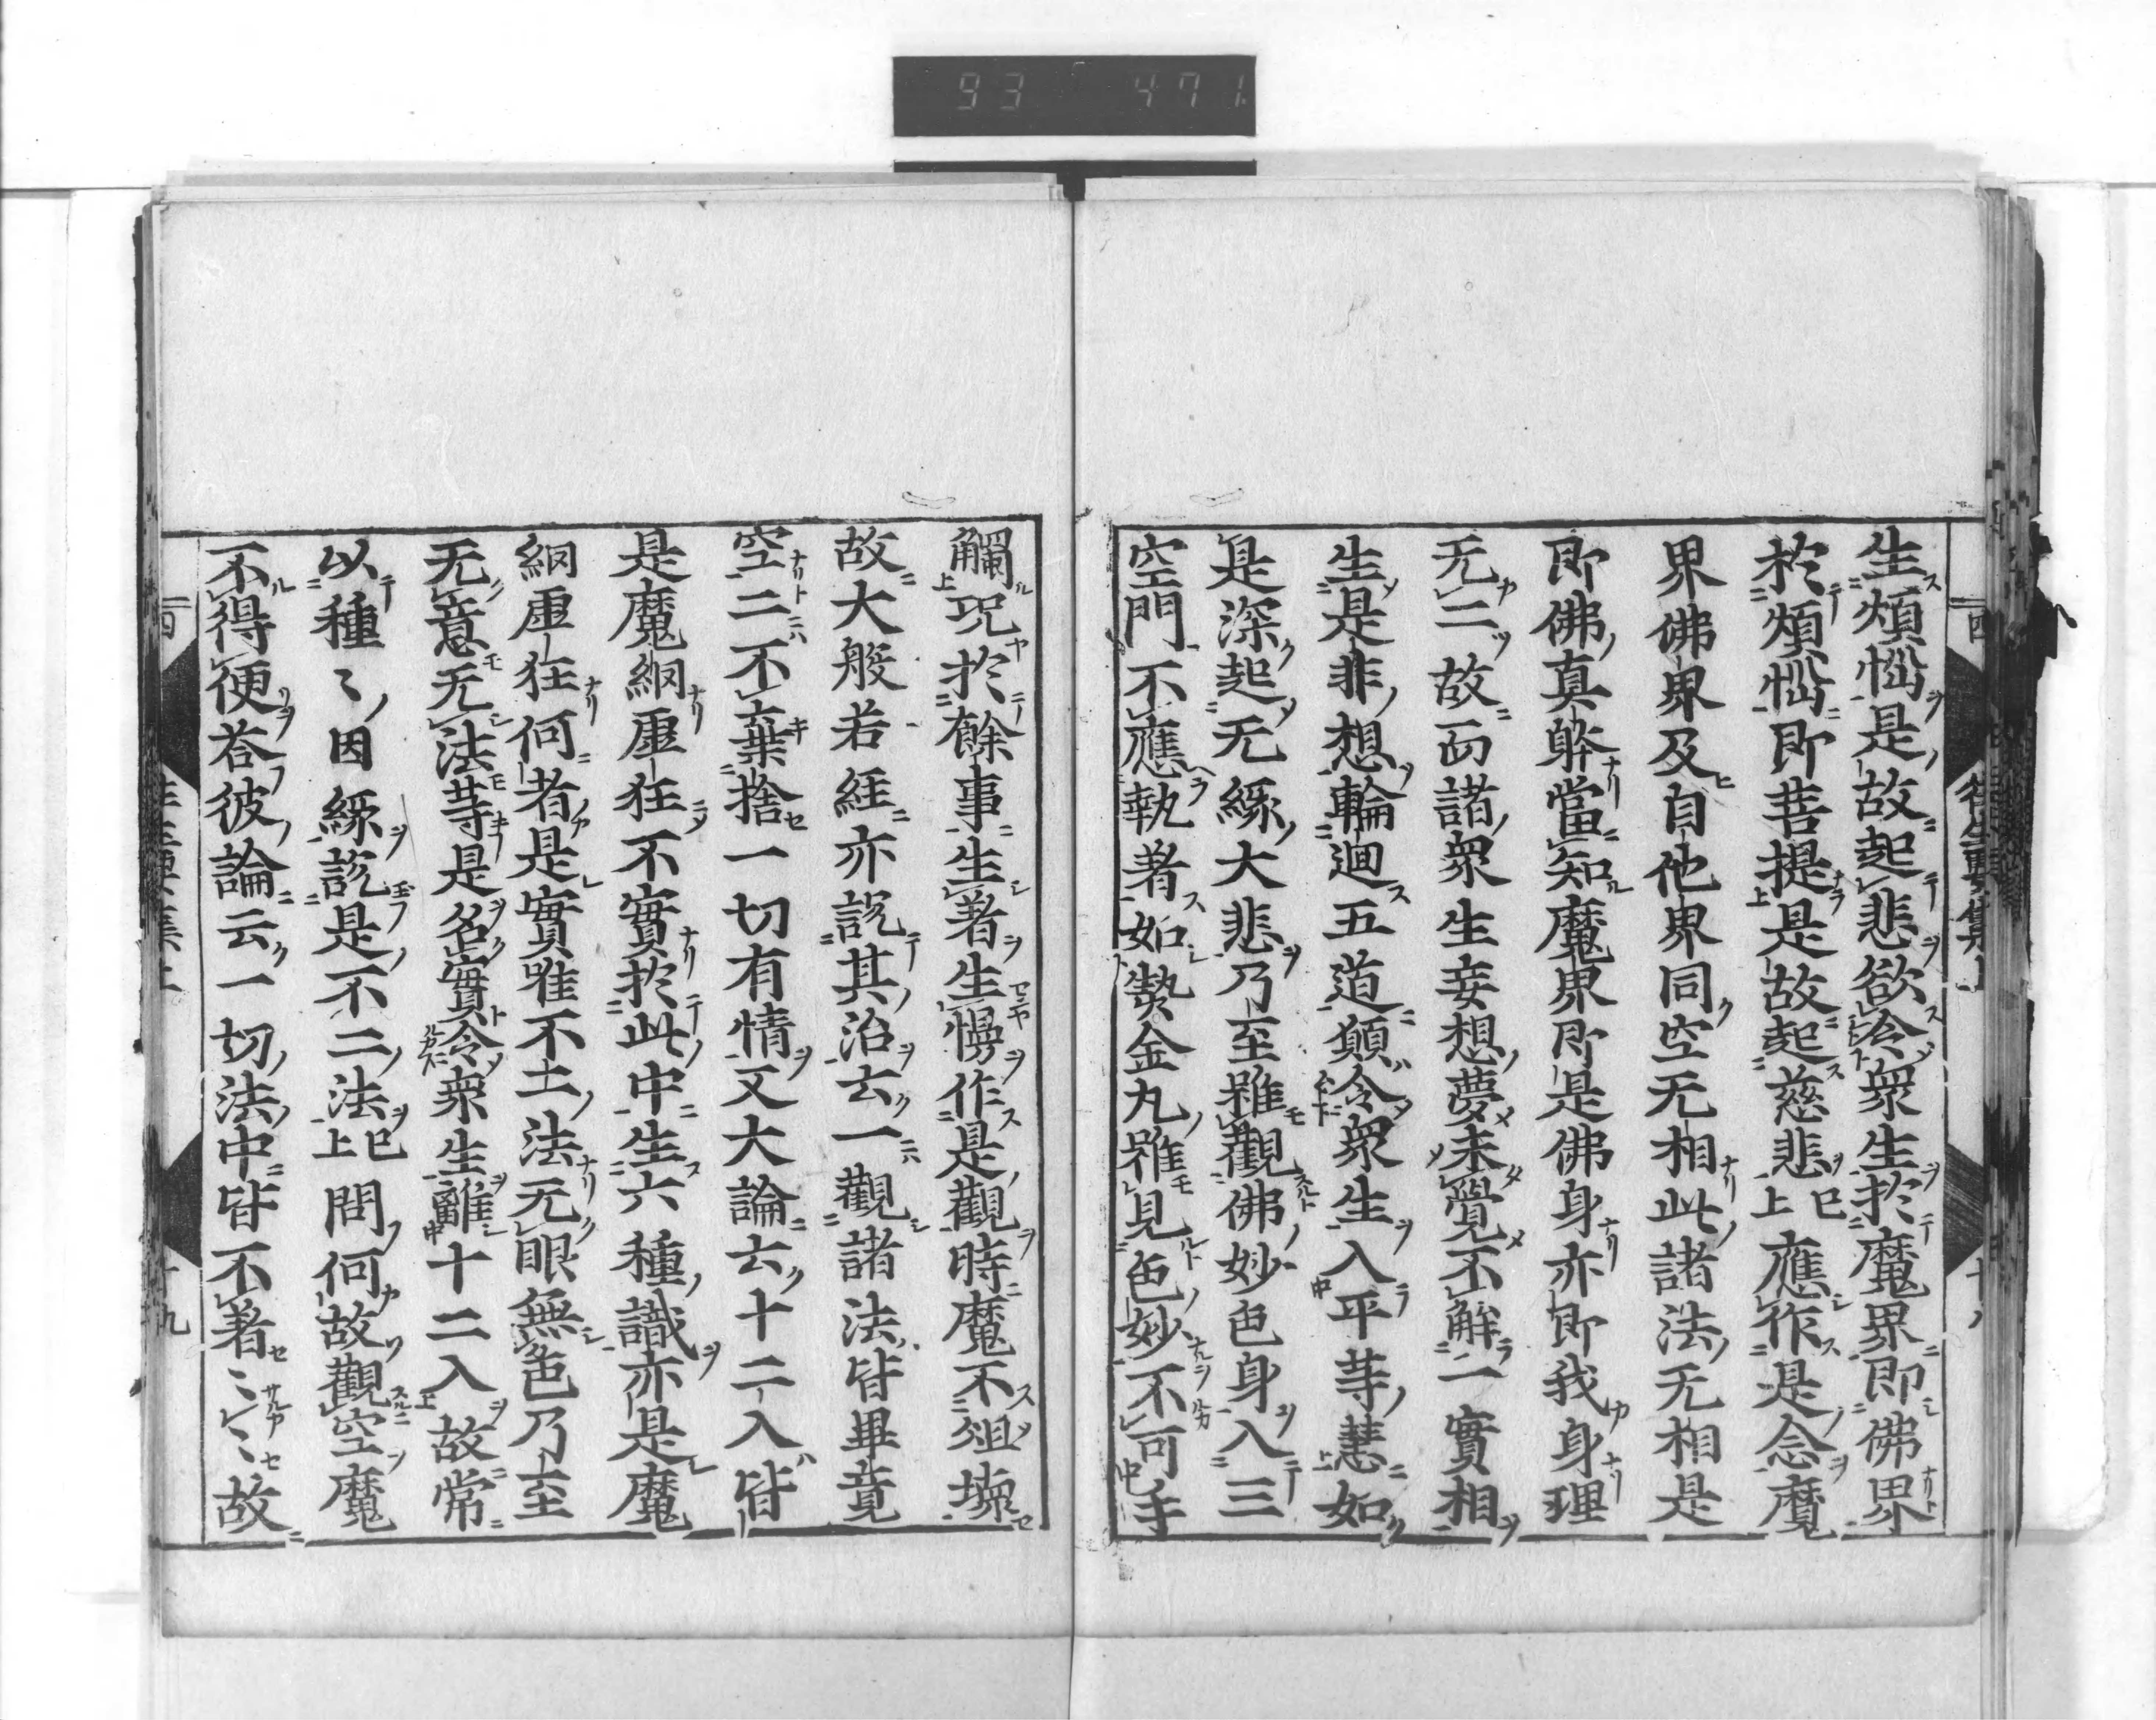 93 471
生煩惱是故起悲欲令衆生於魔界即佛界
於煩惱即菩提是故起慈悲已上應作是念魔
界佛界及自他界同空无相此諸法无相是
即佛真躰當知魔界即是佛身亦即我身理
无二故而諸衆生妄想夢未覺不解一實相
生是非想輪迴五道願令衆生入平等慧如
是深起无縁大悲乃至雖觀佛妙色身入三
空門不應執著如𤍠金丸雖見色妙不可手
觸况於餘事生著生慢作是觀時魔不爼壞
故大般若經亦說其治云一觀諸法皆畢竟
空二不棄捨一切有情又大論云十二入皆
是魔網虛狂不實於此中生六種識亦是魔
網虛狂何者是實唯不二法无眼無色乃至
无意无法等是名實令衆生離十二入故常
以種〻因縁說是不二法已上問何故觀空魔
不得便答彼論云一切法中皆不著〻〻故